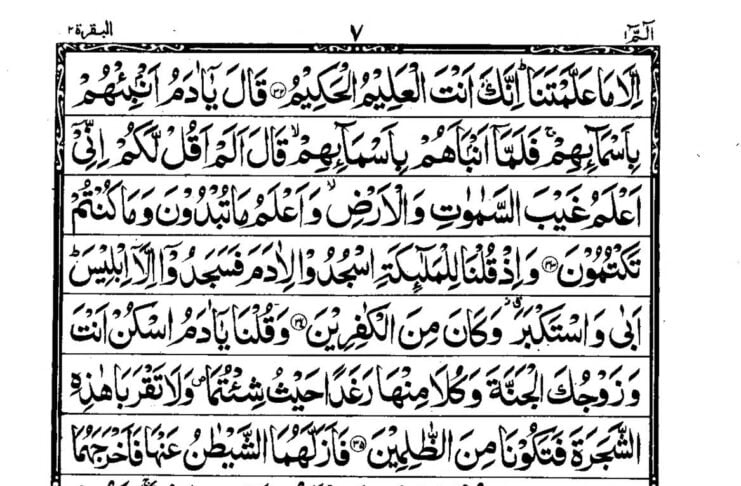 الٓمّٓ ١ ٧ البقرة ٢
اِلَّا مَا عَلَّمْتَنَا ؕ اِنَّكَ اَنْتَ الْعَلِيْمُ الْحَكِيْمُ ﴿۳۲﴾ قَالَ يٰۤاٰدَمُ اَنْۢبِئْهُمْ
بِاَسْمَآئِهِمْ ۚ فَلَمَّاۤ اَنْۢبَاَهُمْ بِاَسْمَآئِهِمْ ۙ قَالَ اَلَمْ اَقُلْ لَّكُمْ اِنِّىْۤ
اَعْلَمُ غَيْبَ السَّمٰوٰتِ وَالْاَرْضِ ۙ وَاَعْلَمُ مَا تُبْدُوْنَ وَمَا كُنْتُمْ
تَكْتُمُوْنَ ﴿۳۳﴾ وَاِذْ قُلْنَا لِلْمَلٰٓئِكَةِ اسْجُدُوْا لِاٰدَمَ فَسَجَدُوْۤا اِلَّاۤ اِبْلِيْسَ ؕ
اَبٰى وَاسْتَكْبَرَ ۗ وَكَانَ مِنَ الْكٰفِرِيْنَ ﴿۳۴﴾ وَقُلْنَا يٰۤاٰدَمُ اسْكُنْ اَنْتَ
وَزَوْجُكَ الْجَنَّةَ وَكُلَا مِنْهَا رَغَدًا حَيْثُ شِئْتُمَا ۪ وَلَا تَقْرَبَا هٰذِهِ
الشَّجَرَةَ فَتَكُوْنَا مِنَ الظّٰلِمِيْنَ ﴿۳۵﴾ فَاَزَلَّهُمَا الشَّيْطٰنُ عَنْهَا فَاَخْرَجَهُمَا